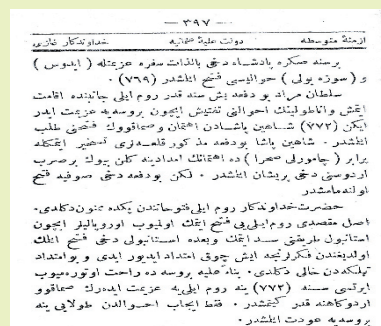 — ٣٩٧ —
ازمنهٔ متوسطه دولت عليهٔ عثمانيه خداوندكار غازى
برسنه صكره پادشاه دخى بالذات سفره عزيمتله ( ايدوس )
و ( سوزه بولى ) حواليسنى فتح ايلمشدر ( ٧٦٩ ) .
سلطان مراد بو دفعه بش سنه قدر روم ايلى جانبنده اقامت
ايتمش واناطولينك احوالنى تفتيش ايچون بروسه‌يه عزيمت ايدر
ايكن ( ٧٧٣ ) شاهين پاشادن اهتمان وصماقووك فتحنى طلب
ايلمشدر . شاهين پاشا بودفعه مذكور قلعه‌لرى تسخير ايتمكله
برابر ( چامورلى صحرا ) ده اهتمانك امدادينه كلن بيوك برصرب
اردوسنى دخى پريشان ايلمشدر . لكن بودفعه دخى صوفيه فتح
اولنه‌مامشدر
حضرت خداوندكار روم ايلى فتوحاتندن پكده ممنون دكلدى .
اصل مقصدى روم‌ايلى‌يى فتح ايتمك اولميوب اوروپاليلر ايچون
استانبول طريقنى سد ايتمك وبعده استانبولى دخى فتح ايلمك
اولديغندن فكرلرنجه ايش چوق امتداد ايديور ايدى و بوامتداد
تهلكه‌دن خالى دكلدى . بناءً عليه بروسه ده راحت اوتوره‌ميوب
ايرتسى سنه ( ٧٧٣ ) ينه روم ايلى‌يه عزيمت ايده‌رك صماقوو
اردوكاهنه قدر كيتمشدر . فقط ايجاب احوالدن طولايى ينه
بروسه‌يه عودت ايلمشدر .